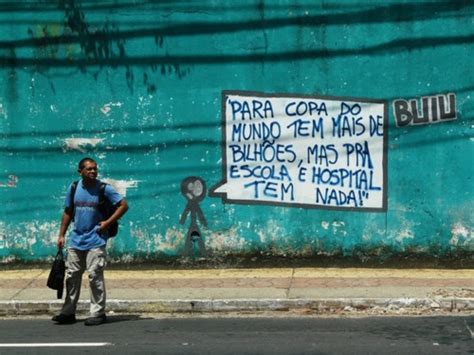 "PARA COPA DO
MUNDO TEM MAIS DE
BILHÕES, MAS PRA
ESCOLA E HOSPITAL
TEM NADA!"
BUIU